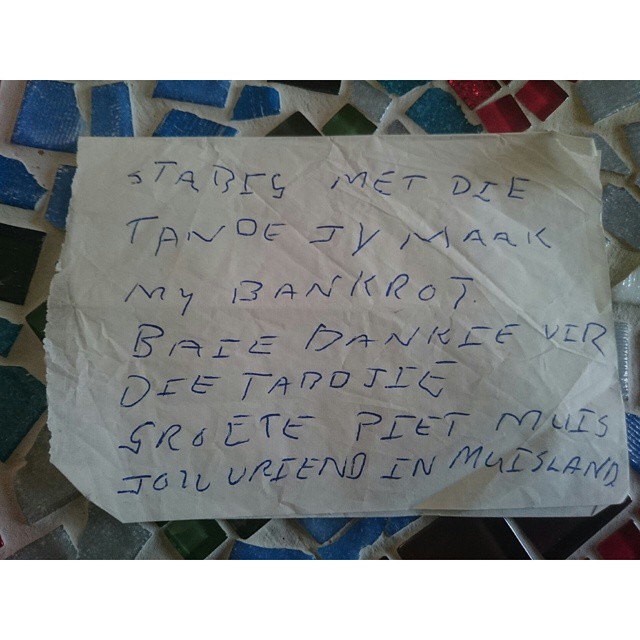 STABIG MET DIE
TANDE JY MAAK
MY BANKROT.
BAIE DANKIE VIR
DIE TANDJIE
GROETE PIET MUIS
JOU VRIEND IN MUISLAND